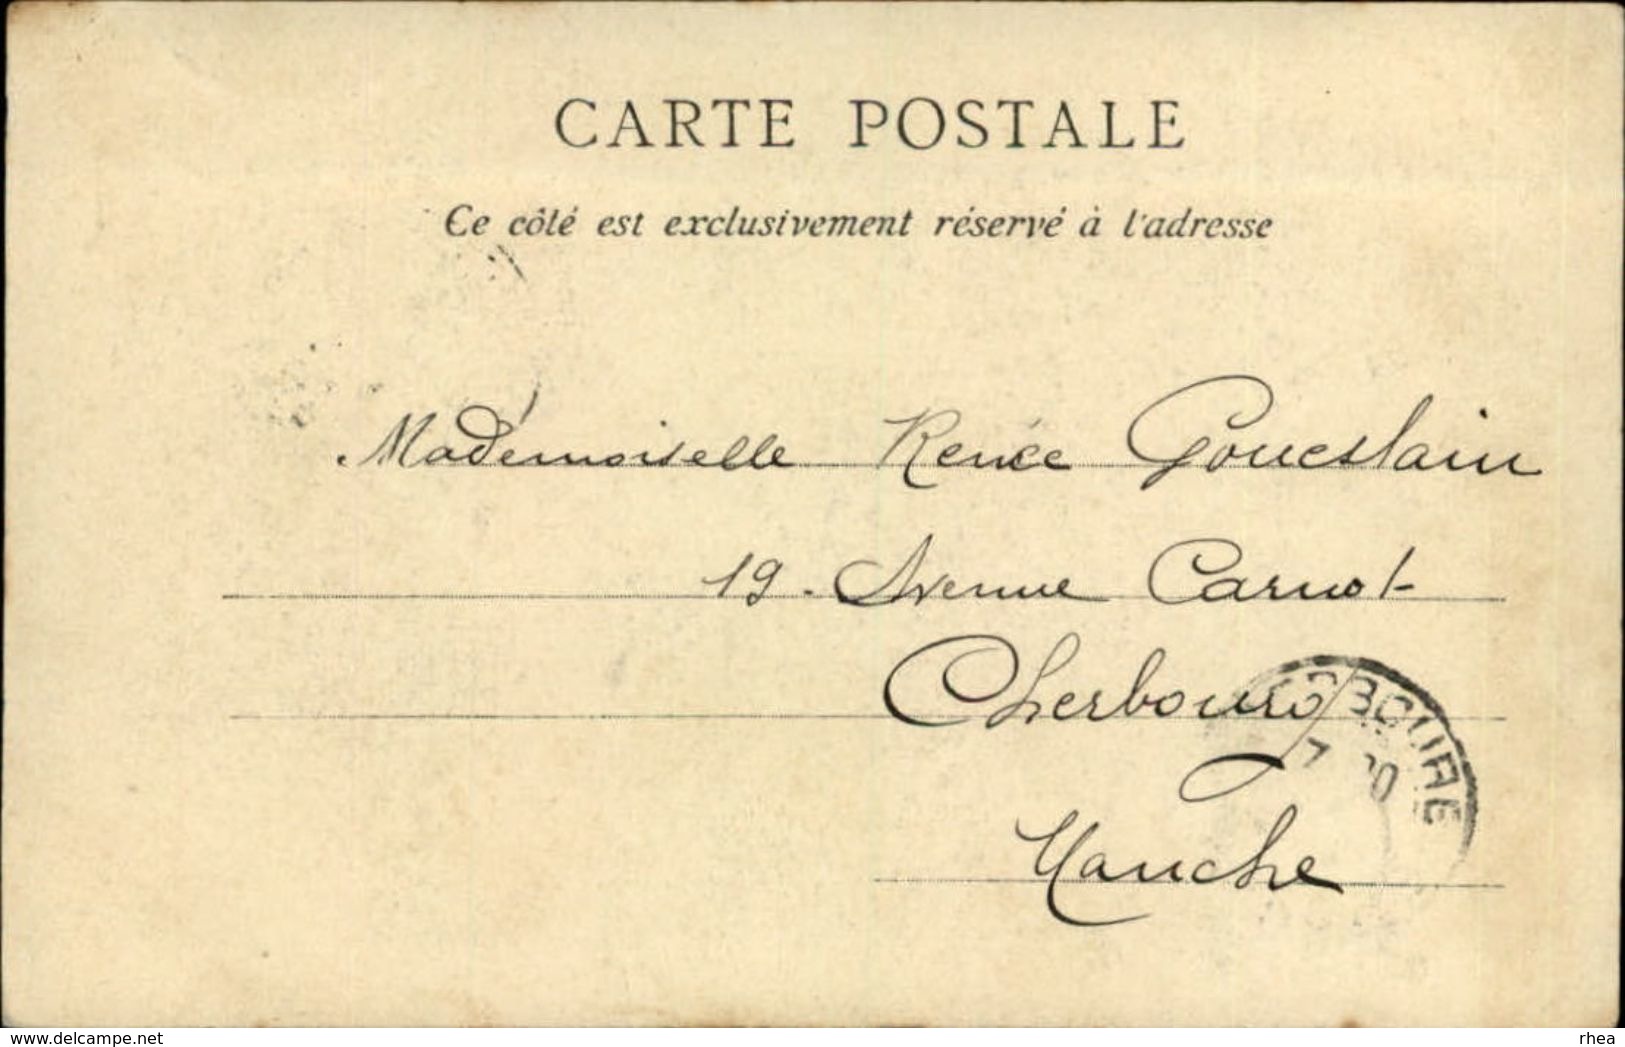 CARTE POSTALE
Ce côté est exclusivement réservé à l'adresse
Mademoiselle Renée Goueslain
19. Avenue Carnot
Cherbourg
Manche
delcampe.net
rhea